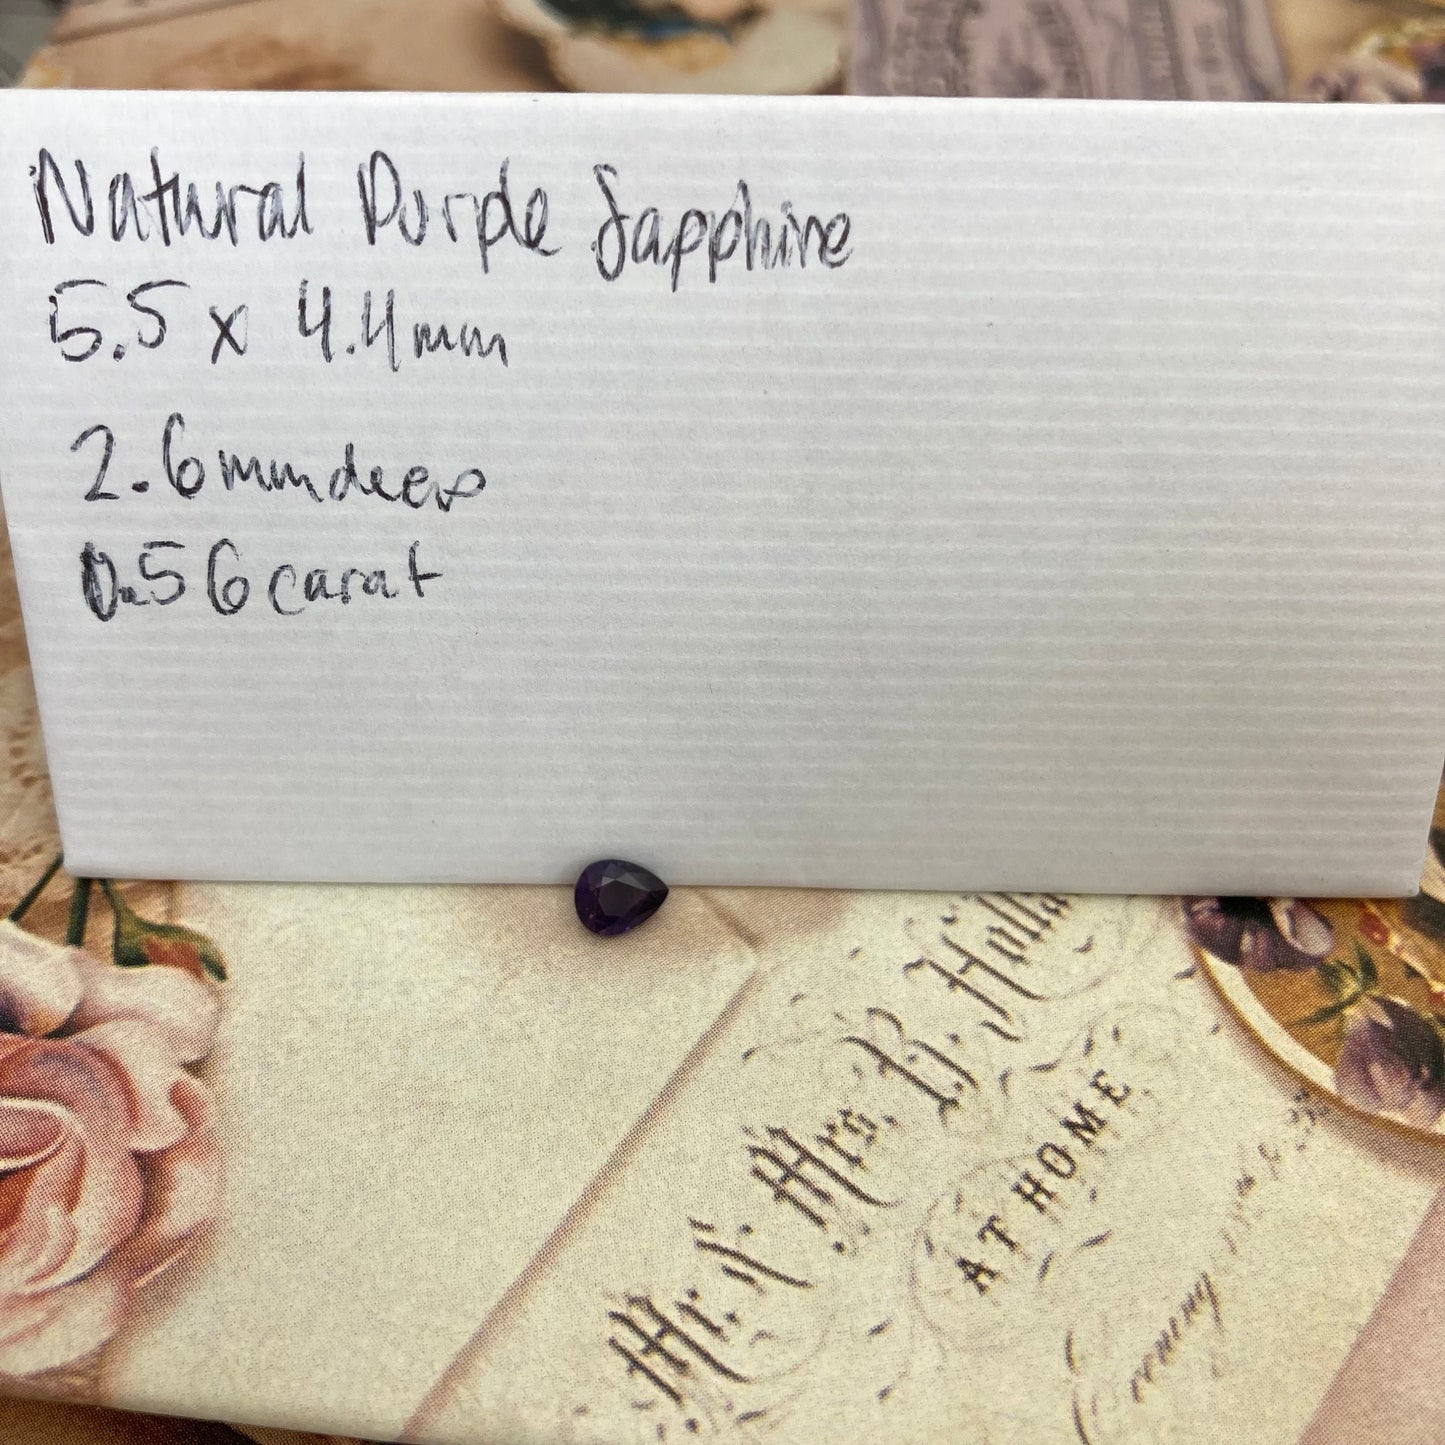 Natural Purple Sapphire
5.5 x 4.4mm
2.6mm deep
0.56 carat
Mr. & Mrs. B. Holla
AT HOME